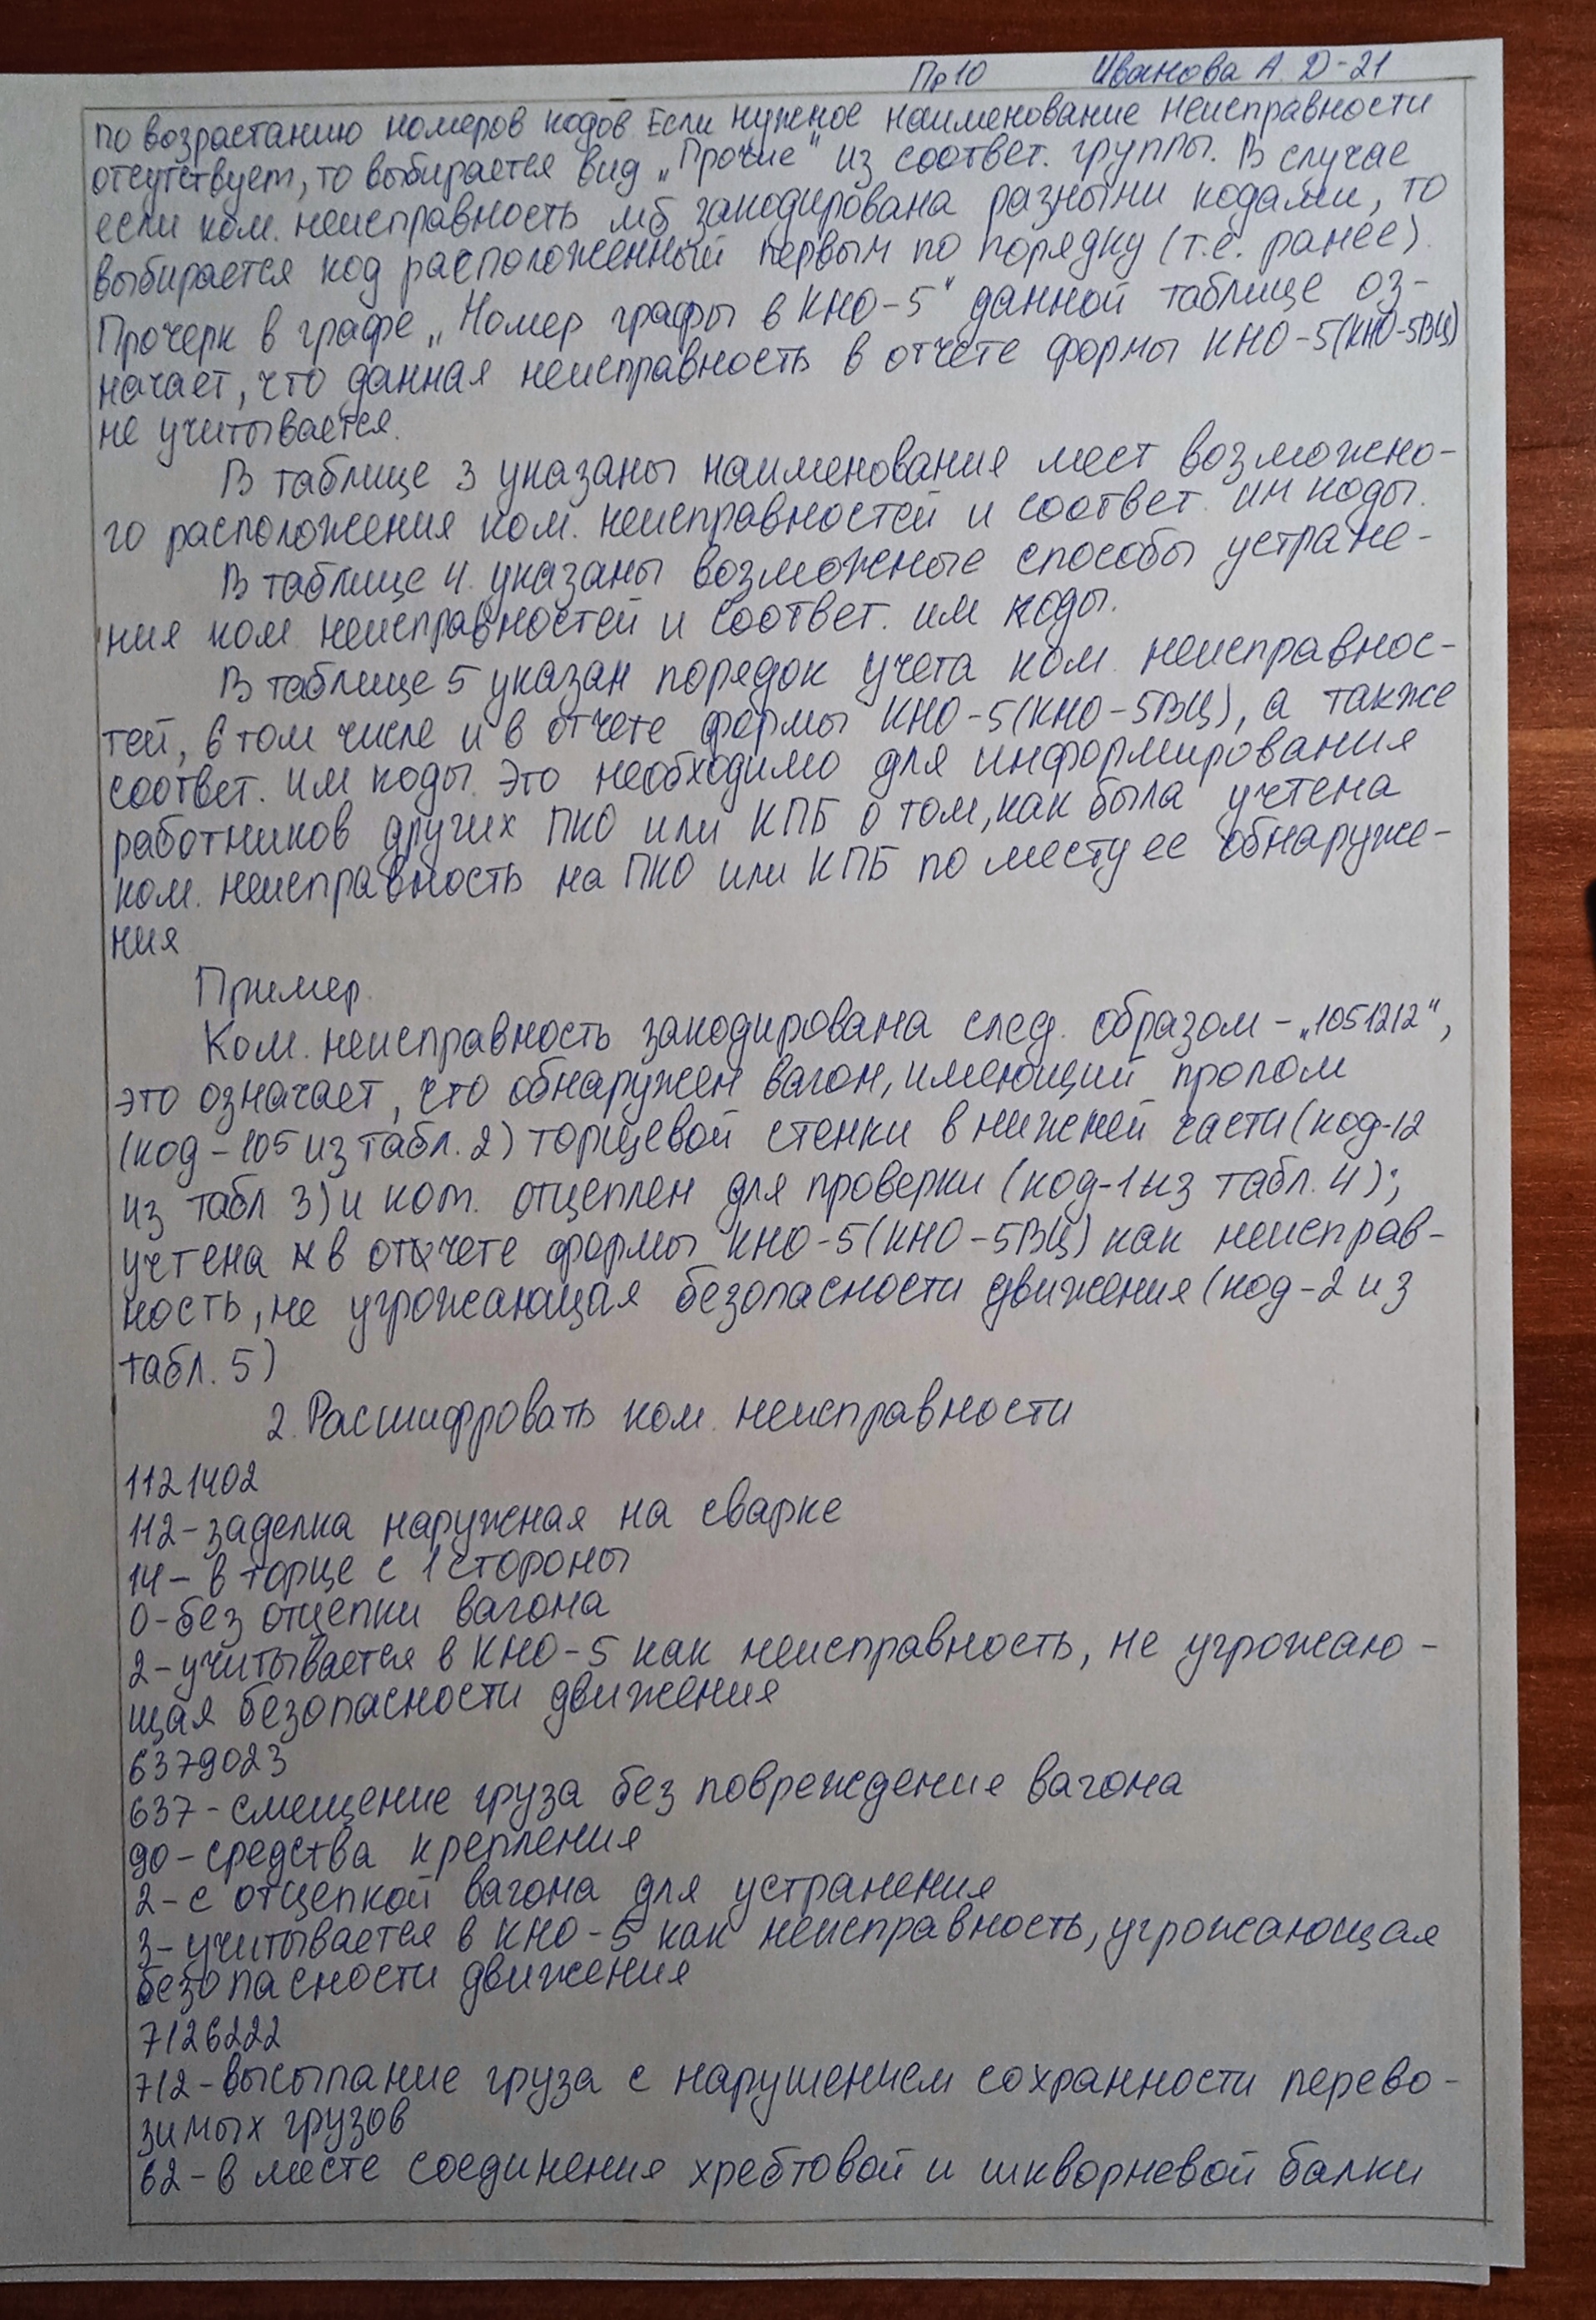 Пр10 Иванова А. Д-21
по возрастанию номеров кодов Если нужное наименование неисправности
отсутствует, то выбирается вид „Прочие" из соответ. группы. В случае
если ком. неисправность мб закодирована разными кодами, то
выбирается код расположенный первым по порядку (т.е. ранее).
Прочерк в графе „Номер графы в КНО-5" данной таблице оз-
начает, что данная неисправность в отчете формы КНО-5(КНО-5ВЦ)
не учитывается.
В таблице 3 указаны наименования мест возможно-
го расположения ком. неисправностей и соответ. им коды.
В таблице 4 указаны возможные способы устране-
ния ком. неисправностей и соответ. им коды.
В таблице 5 указан порядок учета ком. неисправнос-
тей, в том числе и в отчете формы КНО-5(КНО-5ВЦ), а также
соответ. им коды. Это необходимо для информирования
работников других ПКО или КПБ о том, как была учтена
ком. неисправность на ПКО или КПБ по месту ее обнаруже-
ния
Пример.
Ком. неисправность закодирована след. образом - „1051212",
это означает, что обнаружен вагон, имеющий пролом
(код - 105 из табл. 2) торцевой стенки в нижней части (код-12
из табл 3) и ком. отцеплен для проверки (код-1 из табл. 4);
учтена в отчете формы КНО-5(КНО-5ВЦ) как неисправ-
ность, не угрожающая безопасности движения (код-2 из
табл. 5)
2. Расшифровать ком. неисправности
1121402
112-заделка наружная на сварке
14- в торце с 1 стороны
0-без отцепки вагона
2-учитывается в КНО-5 как неисправность, не угрожаю-
щая безопасности движения
6379023
637-смещение груза без повреждение вагона
90-средства крепления
2-с отцепкой вагона для устранения
3-учитывается в КНО-5 как неисправность, угрожающая
безопасности движения
7126222
712-высыпание груза с нарушением сохранности перево-
зимых грузов
62-в месте соединения хребтовой и шкворневой балки